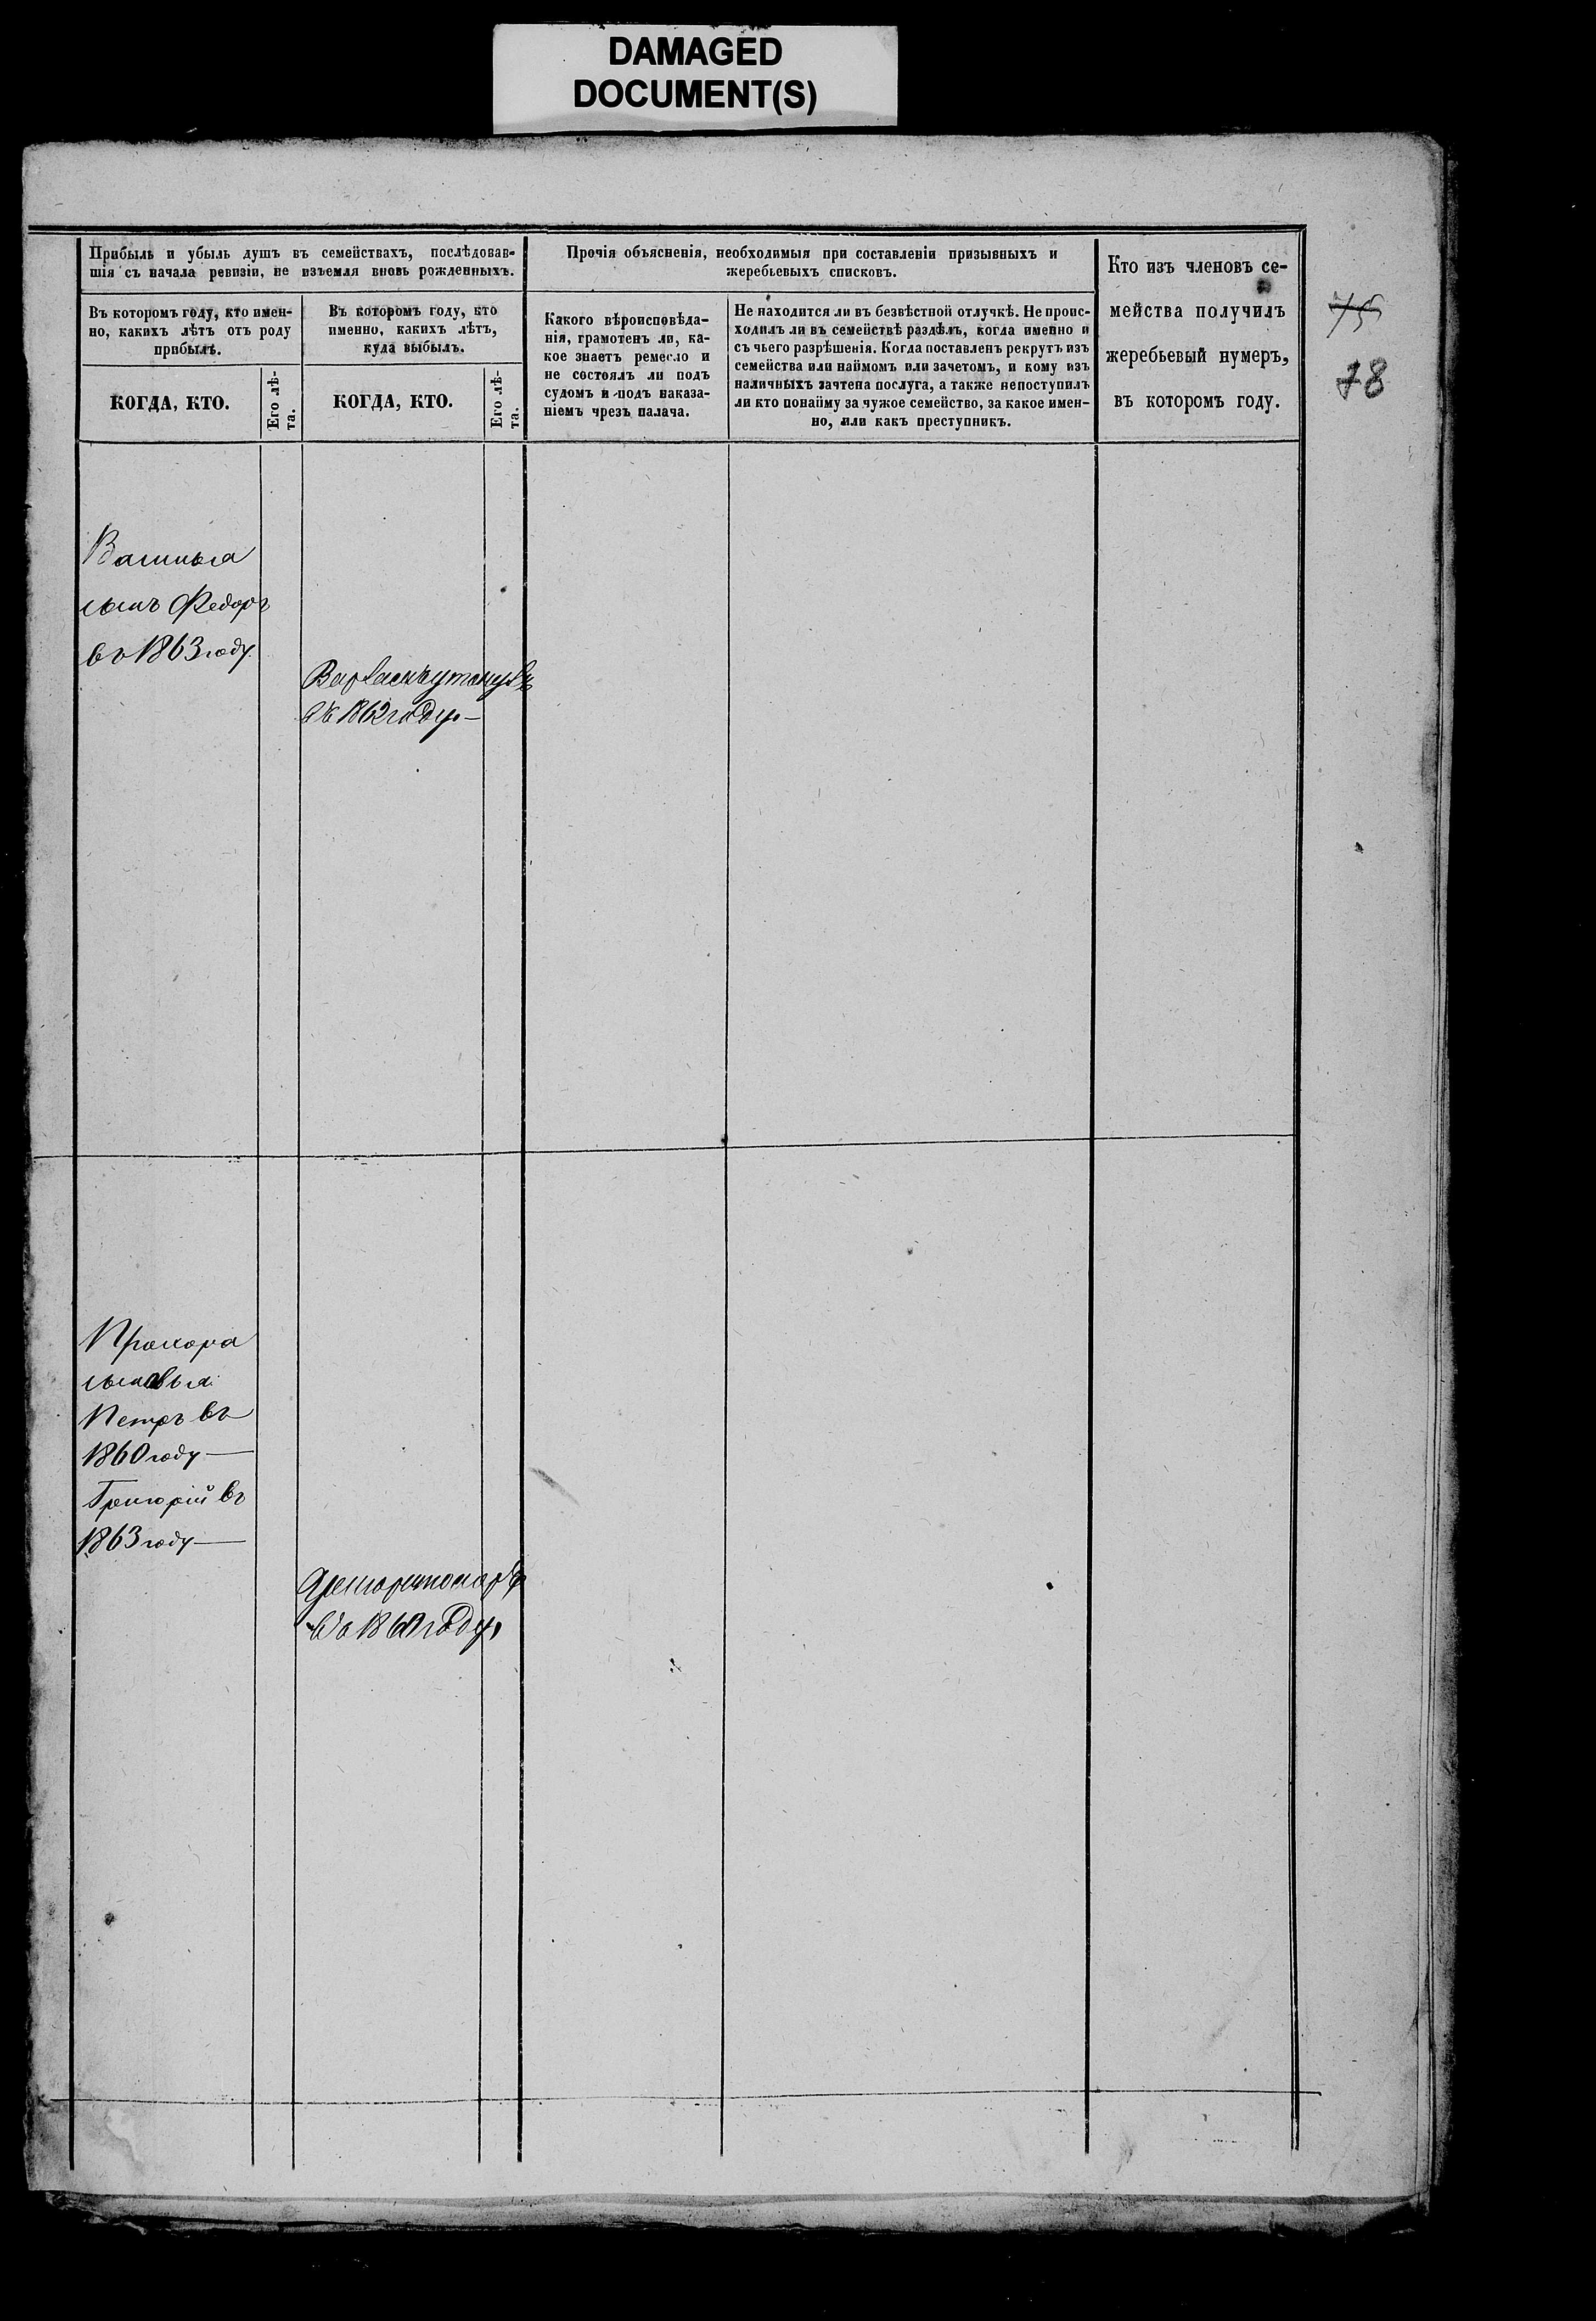 DAMAGED
DOCUMENT(S)
Прибыль и убыль душъ въ семействахъ, послѣдовав-
шія съ начала ревизіи, не изъемля вновь рожденныхъ.
Прочія объясненія, необходимыя при составленіи призывныхъ и
жеребьевыхъ списковъ.
Кто изъ членовъ се-
мейства получилъ
жеребьевый нумеръ,
въ которомъ году.
75
78
Въ которомъ году, кто имен-
но, какихъ лѣтъ отъ роду
прибылъ.
Въ которомъ году, кто
именно, какихъ лѣтъ,
куда выбылъ.
КОГДА, КТО.
Его лѣ-
та.
КОГДА, КТО.
Его лѣ-
та.
Какого вѣроисповѣда-
нія, грамотенъ ли, ка-
кое знаетъ ремесло и
не состоялъ ли подъ
судомъ и подъ наказа-
ніемъ чрезъ палача.
Не находится ли въ безвѣстной отлучкѣ. Не проис-
ходилъ ли въ семействѣ раздѣлъ, когда именно и
съ чьего разрѣшенія. Когда поставленъ рекрутъ изъ
семейства или наймомъ или зачетомъ, и кому изъ
наличныхъ зачтена послуга, а также непоступилъ
ли кто понайму за чужое семейство, за какое имен-
но, или какъ преступникъ.
сынъ Федоръ
въ 1863 году
въ 1862 году
Прохора
сыновья
Петръ въ
1860 году
Григорій въ
1863 году
въ 1860 году